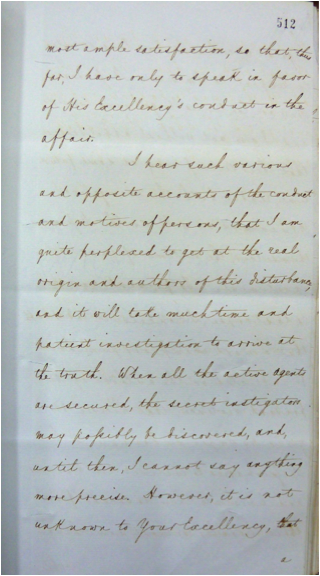 512
most ample satisfaction, so that, thus
far, I have only to speak in favor
of His Excellency's conduct in the
affair.
I hear such various
and opposite accounts of the conduct
and motives of persons, that I am
quite perplexed to get at the real
origin and authors of this disturbance,
and it will take much time and
patient investigation to arrive at
the truth. When all the active agents
are secured, the secret instigators
may possibly be discovered, and,
until then, I cannot say anything
more precise. However, it is not
unknown to Your Excellency, that
a